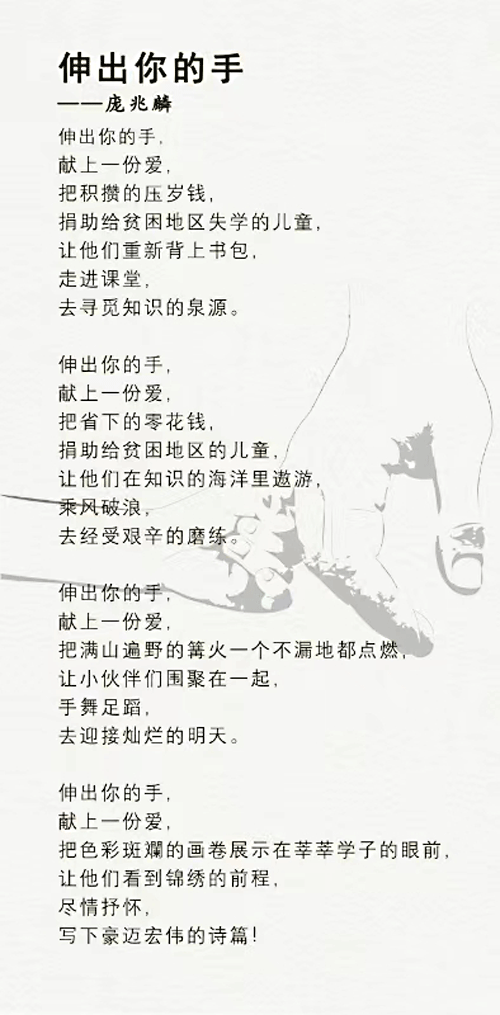 伸出你的手
——庞兆麟
伸出你的手,
献上一份爱,
把积攒的压岁钱,
捐助给贫困地区失学的儿童,
让他们重新背上书包,
走进课堂,
去寻觅知识的泉源。
伸出你的手,
献上一份爱,
把省下的零花钱,
捐助给贫困地区的儿童,
让他们在知识的海洋里遨游,
乘风破浪,
去经受艰辛的磨练。
伸出你的手,
献上一份爱,
把满山遍野的篝火一个不漏地都点燃,
让小伙伴们围聚在一起,
手舞足蹈,
去迎接灿烂的明天。
伸出你的手,
献上一份爱,
把色彩斑斓的画卷展示在莘莘学子的眼前,
让他们看到锦绣的前程,
尽情抒怀,
写下豪迈宏伟的诗篇!